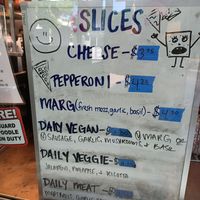 SLICES
CHEESE - $3.75
PEPPERONI - $4.25
MARG (fresh mozz, garlic, basil) -
DAILY VEGAN - $ @ MARG or
@ SAUSAGE, GARLIC, MUSHROOMS & BASIL
DAILY VEGGIE - $
JALAPENO, PINEAPPLE, & RICOTTA
DAILY MEAT - $
RE!
GUARD
POODLE
ON DUTY